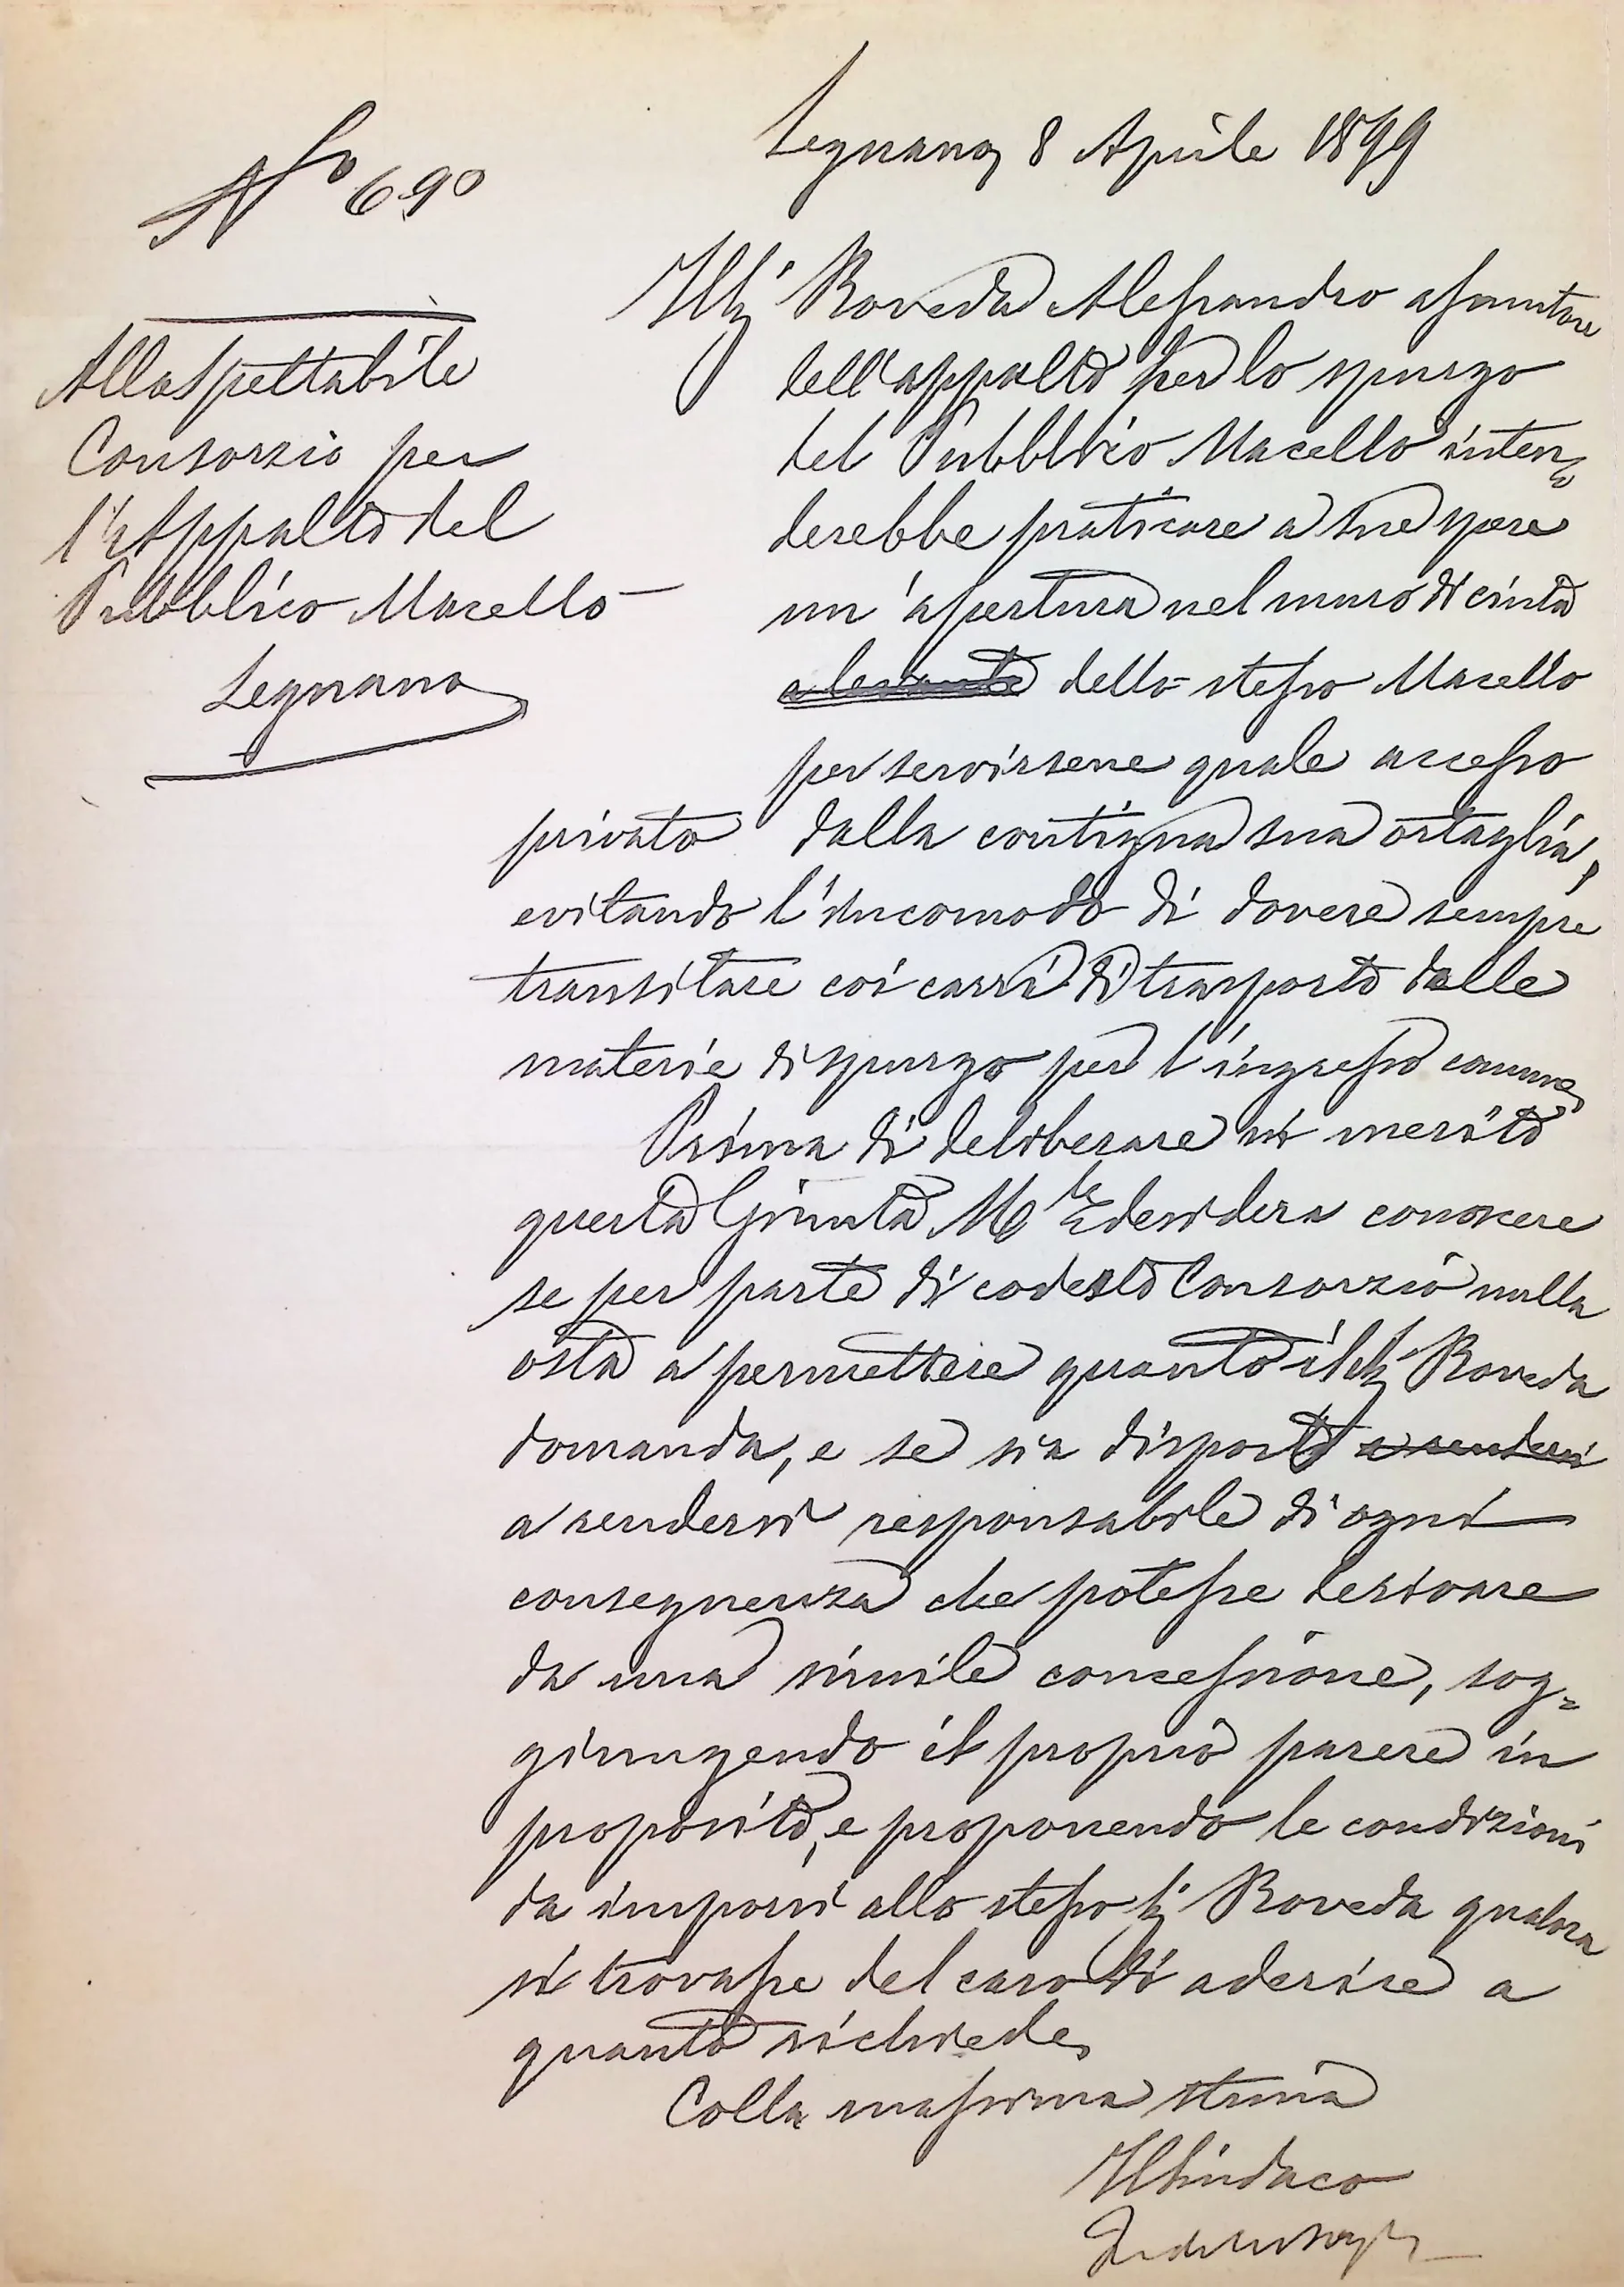 Legnano, 8 Aprile 1899
N° 690
Alla Spettabile
Consorzio per
l'Appalto del
Pubblico Macello
Legnano
Il Sig. Roveda Alessandro assuntore
dell'appalto per lo spurgo
del Pubblico Macello inten=
derebbe praticare a sue spese
un'apertura nel muro di cinta
a levante dello stesso Macello
per servirsene quale accesso
privato dalla contigua sua ortaglia,
evitando l'incomodo di dovere sempre
transitare coi carri di trasporto delle
materie di spurgo per l'ingresso comune.
Prima di deliberare in merito
questa Giunta M.le desidera conoscere
se per parte di codesto Consorzio nulla
osta a permettere quanto il Sig. Roveda
domanda, e se sia disposto a rendersi
a rendersi responsabile di ogni
conseguenza che potesse derivare
da una simile concessione, sog=
giungendo il proprio parere in
proposito, e proponendo le condizioni
da imporsi allo stesso Sig. Roveda qualora
si trovasse del caso di aderire a
quanto richiede.
Colla massima stima
Il Sindaco